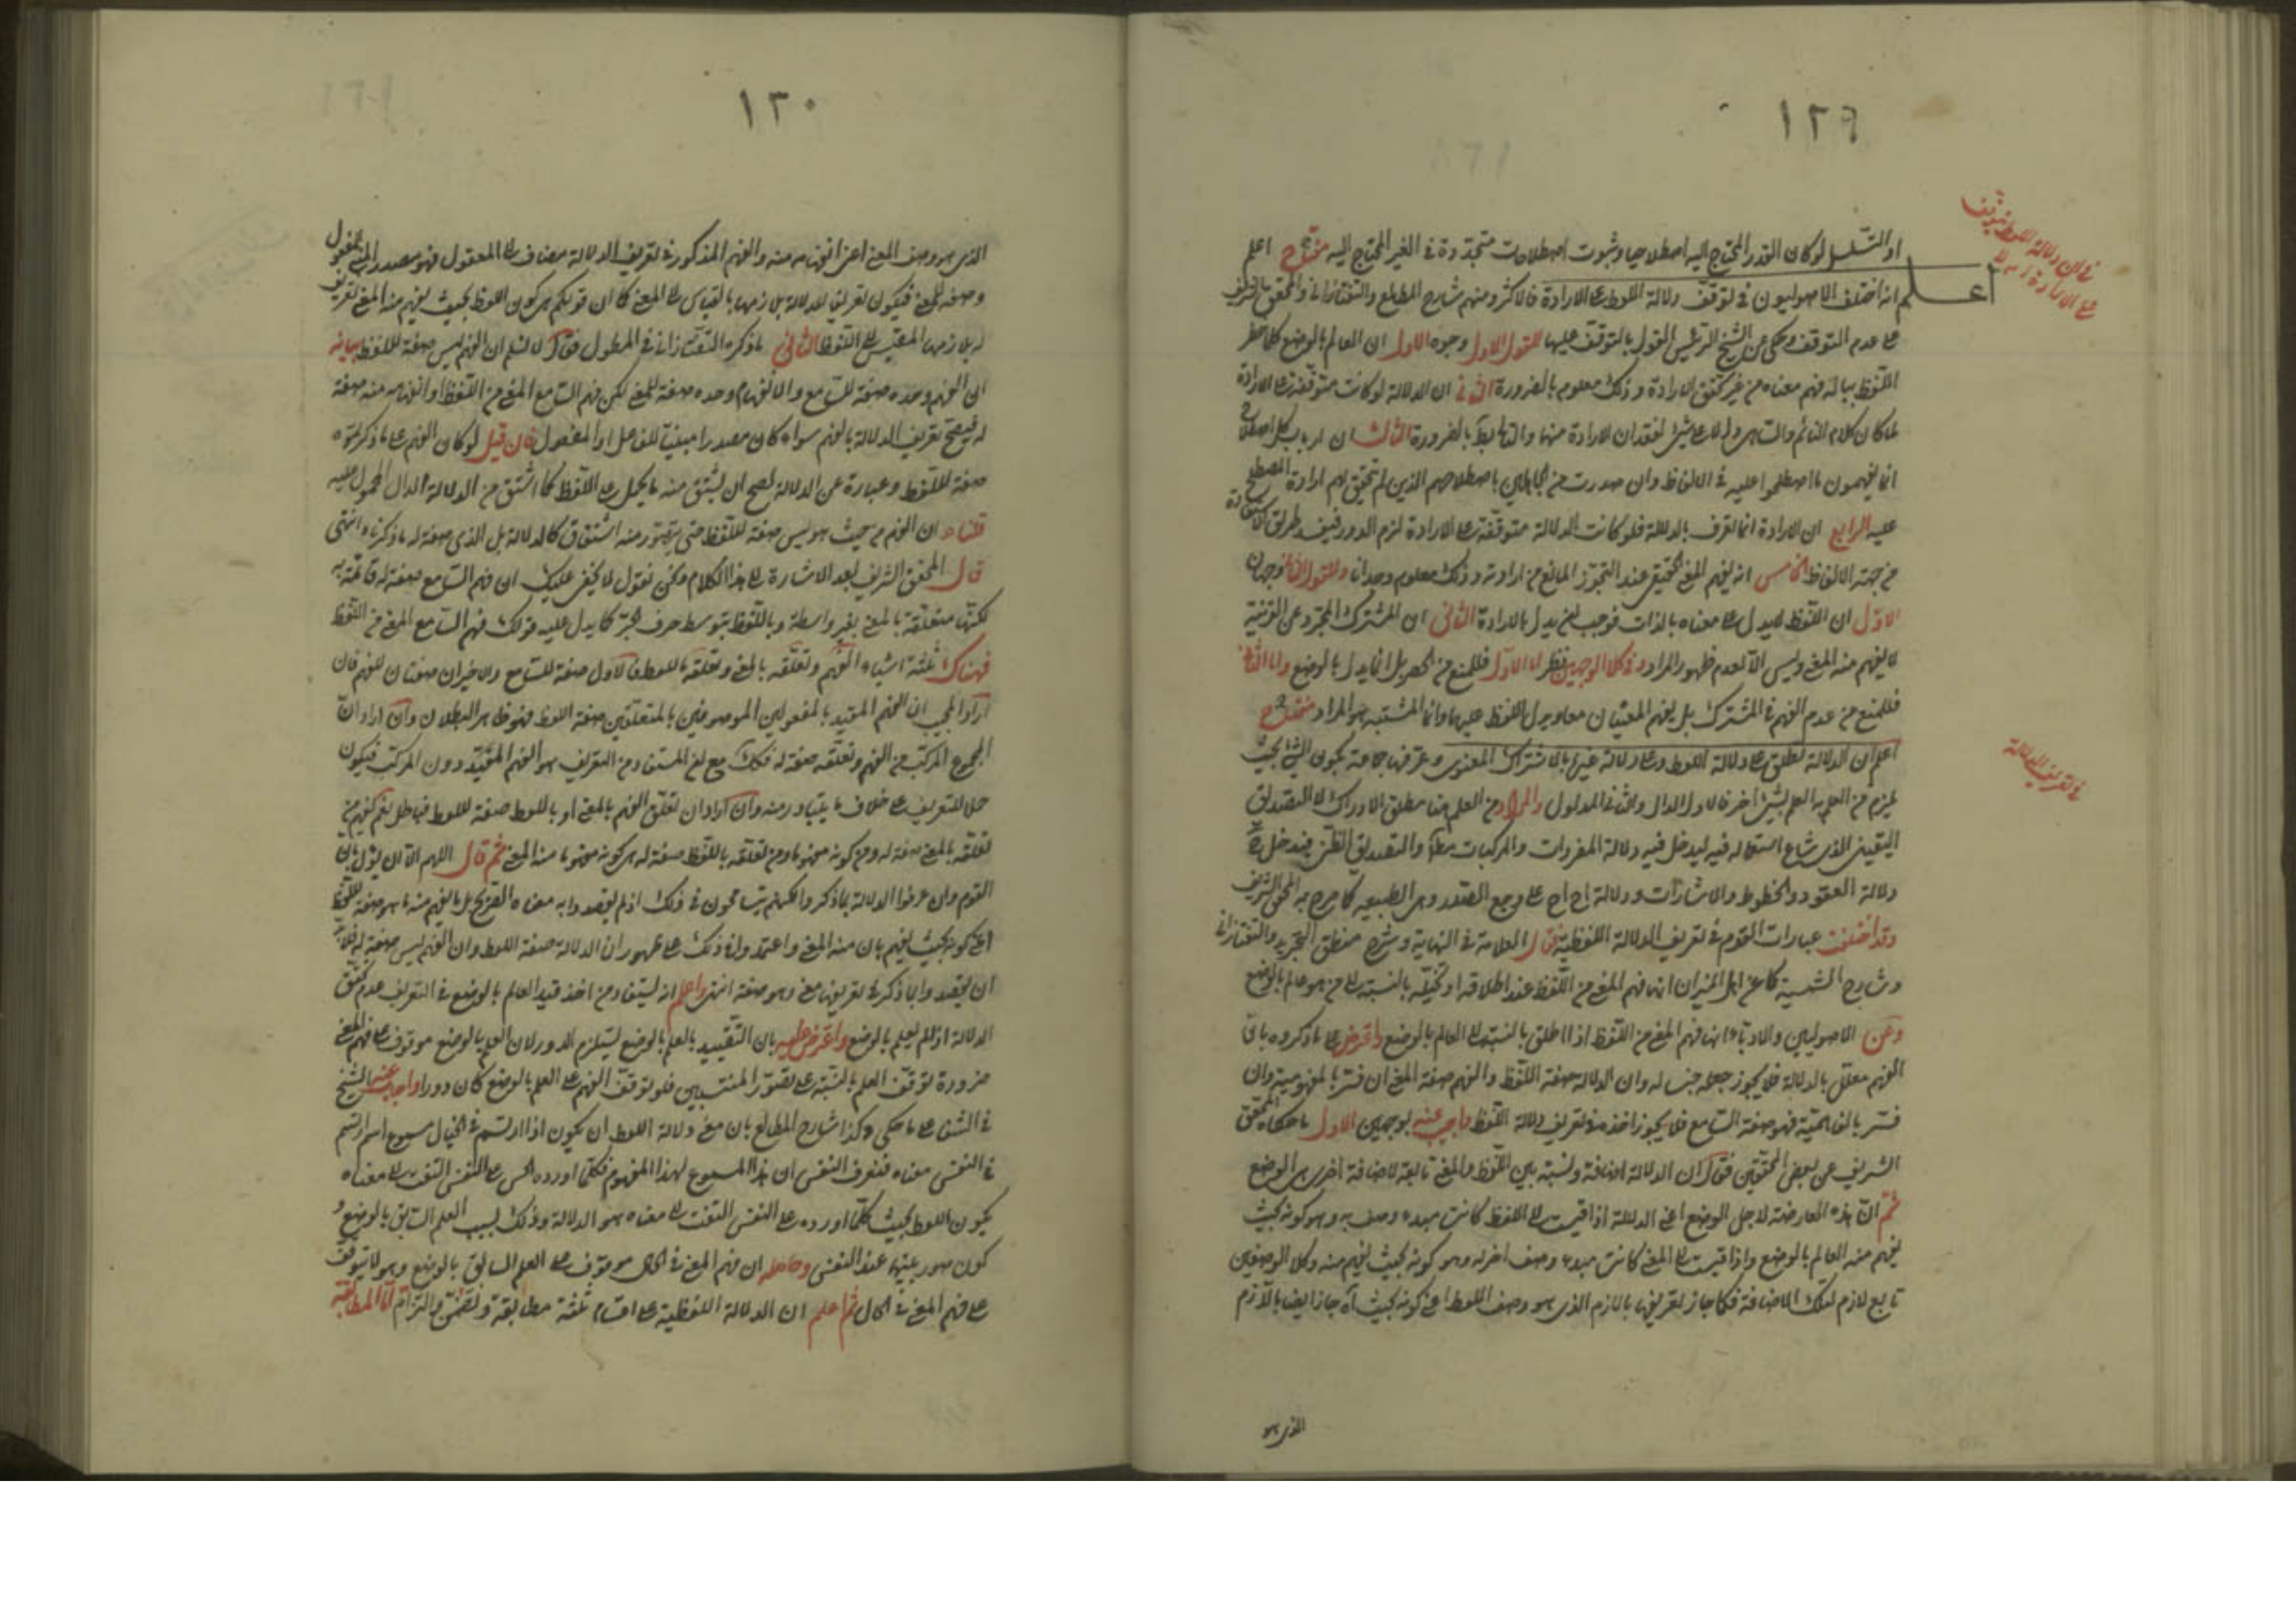 ١٢٩
او التسلسل لو كان القدر المحتاج اليه اصطلاحيا وثبوت اصطلاحات متجددة في الغير المحتاج اليه مفتاح اعلم
اعلم انه اختلف الاصوليون في توقف دلالة اللفظ على الارادة فالاكثر ومنهم شارح المطالع والتفتازاني والمحقق الشريف
على عدم التوقف وحكى عن الشيخ الرئيس القول بالتوقف عليها للقول الاول وجوه الاول ان العالم بالوضع كلما حضر
اللفظ بباله فهم معناه من غير تحقق الارادة وذلك معلوم بالضرورة الثاني ان الدلالة لو كانت متوقفة على الارادة
لما كان كلام النائم والساهي دالا على شيء لفقدان الارادة منهما والتالي بط بالضرورة الثالث ان ارباب كل اصطلاح
انما يفهمون ما اصطلحوا عليه في الالفاظ وان صدرت من الجاهلين باصطلاحهم الذين لم تتحقق لهم ارادة المصطلح
عليه الرابع ان الارادة انما تعرف بالدلالة فلو كانت الدلالة متوقفة على الارادة لزم الدور فينسد طريق الاستفادة
من جهة الالفاظ الخامس انه يفهم المعنى الحقيقي عند التجوز المانع من ارادته وذلك معلوم وجدانا وللقول الثاني وجهان
الاول ان اللفظ لا يدل على معناه بالذات فوجب ان يدل بالارادة الثاني ان المشترك المجرد عن القرينة
لا يفهم منه المعنى وليس الا لعدم ظهور المراد وفي كلا الوجهين نظر اما الاول فللمنع من الحصر بل انما يدل بالوضع واما الثاني
فللمنع من عدم الفهم في المشترك بل يفهم المعنيان معا ويدل اللفظ عليهما وانما المشتبه هو المراد مفتاح
اعلم ان الدلالة تطلق على دلالة اللفظ وعلى دلالة غيرها بالاشتراك المعنوي وعرفها جماعة بكون الشيء بحيث
يلزم من العلم به العلم بشيء اخر فالاول الدال والثاني المدلول والمراد من العلم هنا مطلق الادراك لا التصديق
اليقيني الذي شاع استعماله فيه ليدخل فيه دلالة المفردات والمركبات مطلقا والتصديق الظني فيدخل فيه
دلالة العقود والخطوط والاشارات ودلالة اح اح على وجع الصدر وهي الطبيعية كما صرح به المحقق الشريف
وقد اختلفت عبارات القوم في تعريف الدلالة اللفظية فقال العلامة في النهاية وشرح منطق التجريد والتفتازاني
وشارح الشمسية كما عن اهل الميزان انها فهم المعنى من اللفظ عند اطلاقه او تخيله بالنسبة الى من هو عالم بالوضع
وعن الاصوليين والادباء انها فهم المعنى من اللفظ اذا اطلق بالنسبة الى العالم بالوضع واعترض على ما ذكروه بان
الفهم معلل بالدلالة فلا يجوز جعله جنسا له وان الدلالة صفة اللفظ والفهم صفة المعنى ان فسر بالمفهومية وان
فسر بالفاهمية فهو صفة السامع فلا يجوز اخذه في تعريف دلالة اللفظ واجيب عنه بوجهين الاول ما حكاه المحقق
الشريف عن بعض المحققين فقال ان الدلالة اضافة ونسبة بين اللفظ والمعنى تابعة لاضافة اخرى هي الوضع
ثم ان هذه العارضة لاجل الوضع اعني الدلالة اذا قيست الى اللفظ كانت مبدء وصف به وهو كونه بحيث
يفهم منه العالم بالوضع واذا قيست الى المعنى كانت مبدء وصف اخر له وهو كونه بحيث يفهم منه وكلا الوصفين
تابع لازم لتلك الاضافة فكما جاز تعريفها باللازم الذي هو وصف اللفظ اعني كونه بحيث اه جاز ايضا باللازم
الذي هو
في ان دلالة اللفظ تتوقف
على الارادة ام لا
في تعريف الدلالة
١٣٠
الذي هو وصف المعنى اعني انفهامه منه والفهم المذكور في تعريف الدلالة مضاف الى المعقول فهو مصدر المبني للمفعول
وصفة للمعنى فيكون تعريفا للدلالة بلازمها بالقياس الى المعنى كما ان قولكم هي كون اللفظ بحيث يفهم منه المعنى تعريف
له بلازمها المقيس الى اللفظ الثاني ما ذكره التفتازاني في المطول فقال لا نسلم ان الفهم ليس صفة للفظ بيانه
ان الفهم وحده صفة للسامع والانفهام وحده صفة للمعنى لكن فهم السامع المعنى من اللفظ او انفهامه منه صفة
له فيصح تعريف الدلالة بالفهم سواء كان مصدرا مبنيا للفاعل او المفعول فان قيل لو كان الفهم على ما ذكرتموه
صفة للفظ وعبارة عن الدلالة لصح ان يشتق منه ما يحمل على اللفظ كما اشتق من الدلالة الدال المحمول عليه
قلنا ان الفهم من حيث هو ليس صفة للفظ حتى يتصور منه اشتقاق كالدلالة بل الذي صفة له ما ذكرناه انتهى
قال المحقق الشريف بعد الاشارة الى هذا الكلام ونحن نقول لا يخفى عليك ان فهم السامع صفة له قائمة به
لكنها متعلقة بالمعنى بغير واسطة وباللفظ بتوسط حرف الجر كما يدل عليه قولك فهم السامع المعنى من اللفظ
فهناك ثلثة اشياء الفهم وتعلقه بالمعنى وتعلقه باللفظ فالاول صفة للسامع والاخيران صفتان للفهم فان
اراد المجيب ان الفهم المقيد بالمفعولين الموصوفين بالمتعلقين صفة اللفظ فهو ظاهر البطلان وان اراد ان
المجموع المركب من الفهم وتعلقه صفة له فكذلك مع ان المستفاد من التعريف هو الفهم المقيد دون المركب فيكون
حملا للتعريف على خلاف ما يتبادر منه وان اراد ان تعلق الفهم بالمعنى او باللفظ صفة للفظ فباطل نعم يفهم من
تعلقه بالمعنى صفة له وهي كونه مفهوما ومن تعلقه باللفظ صفة له هي كونه مفهوما منه المعنى ثم قال اللهم الا ان يؤل بان
القوم وان عرفوا الدلالة بما ذكر والكنهم يتسامحون في ذلك اذ لم يقصدوا به معناه الصريح بل ما يفهم منه ما هو صفة للفظ
اعني كونه بحيث يفهم بان منه المعنى واعتمدوا في ذلك على ظهور ان الدلالة صفة اللفظ وان الفهم ليس صفة له فلابد
ان يقصدوا بما ذكر في تعريفها معنى وهو صفة انتهى واعلم انه يستفاد من اخذ قيد العالم بالوضع في التعريف عدم تحقق
الدلالة اذا لم يعلم بالوضع واعترض عليه بان التقييد بالعلم بالوضع يستلزم الدور لان العلم بالوضع موقوف على فهم المعنى
ضرورة توقف العلم بالنسبة على تصور المنتسبين فلو توقف الفهم على العلم بالوضع كان دورا واجاب عنه الشيخ
في الشفا على ما حكي وكذا شارح المطالع بان معنى دلالة اللفظ ان يكون اذا ارتسم في الخيال مسموع اسم ارتسم
في النفس معناه فتعرف النفس ان هذا المسموع لهذا المفهوم فكلما اورده الحس على النفس التفت الى معناه
بكون اللفظ بحيث كلما اورده على النفس التفت الى معناه هو الدلالة وذلك بسبب العلم السابق بالوضع و
كون صورتيهما عند النفس وحاصله ان فهم المعنى في الحال موقوف على العلم السابق بالوضع وهو لا يتوقف
على فهم المعنى في الحال ثم اعلم ان الدلالة اللفظية على اقسام ثلثة مطابقة وتضمن والتزام اما المطابقة